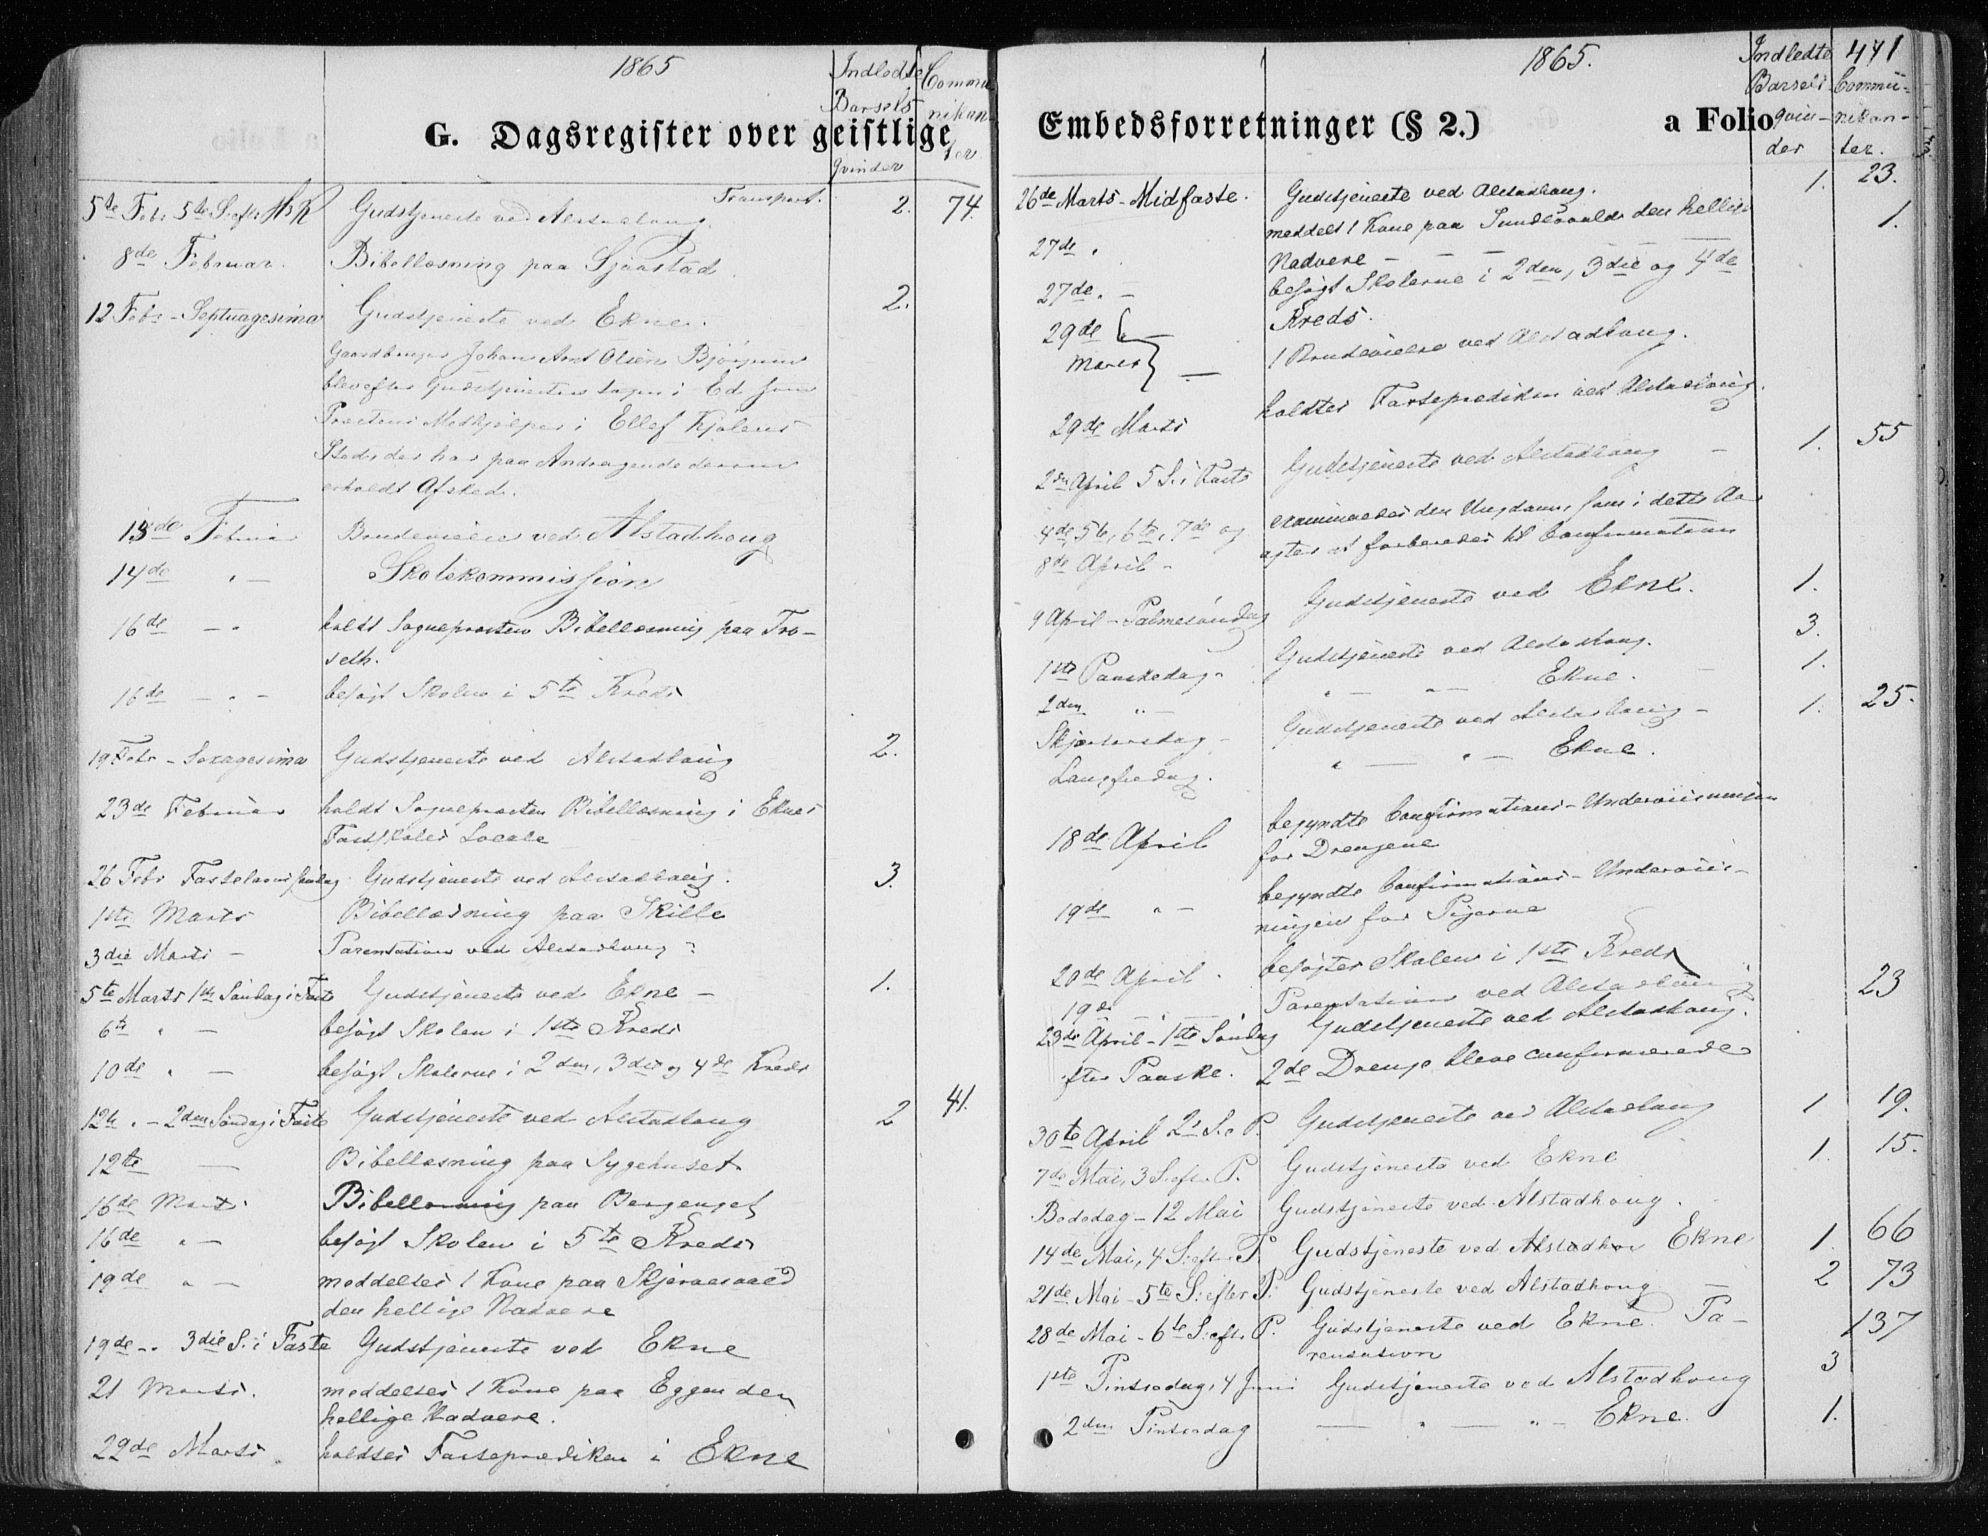 1865
Indledte
Barsels
qvinder
Commu
nikan
ter.
G. Dagsregister over geistlige
Transport. 2. 74.
5te Febr 5te S. efter H3K Gudstjeneste ved Alstadhoug.
8de Februar. Bibellæsning paa Sjøastad.
12 Febr - Septuagesima Gudstjeneste ved Ekne. 2.
Gaardbruger Johan Arnt Olsen
blev efter Gudstjenesten tagen i Ed som
Præstens Medhjelper i Ellef Kjølens
Sted, der har paa Andragende derom
erholdt Afsked.
13de Februar Brudevielse ved Alstadhoug
14de " - Skolekommission
16de - " holdt Sognepræsten Bibellæsning paa Tro-
seth.
16de - " - besøgt Skolen i 5te Kreds
19 Febr - Sexagesima Gudstjeneste ved Alstadhoug 2.
23de Februar holdt Sognepræsten Bibellæsning i Eknes
Fastskoles Locale
26 Febr Fastelavns Søndag Gudstjeneste ved Alstadhoug. 3.
1ste Marts Bibellæsning paa Skille
3die Marts - Parentation ved Alstadhoug
5te Marts 1ste Søndag i Faste Gudstjeneste ved Ekne - 1.
6te " - besøgt Skolen i 1ste Kreds
10de " - besøgt Skolerne i 2den, 3die og 4de Kreds
12te " - 2den Søndag i Faste Gudstjeneste ved Alstadhoug 2 41.
12te - Bibellæsning paa Sygehuset
16de Marts. Bibellæsning paa
16de " - besøgt Skolen i 5te Kreds
19de " - meddeltes 1 Kone paa
den hellige Nadvere
19de - " 3die S. i Faste Gudstjeneste ved Ekne
21 Marts. meddeltes 1 Kone paa Eggen den
hellige Nadvere.
29de Marts. holdtes Fasteprædiken i Ekne
1865.
Indledte
Barsels
qvin-
der
471
Commu-
nikan-
ter.
Embedsforretninger (§ 2.) a Folio
26de Marts - Midfaste. Gudstjeneste ved Alstadhoug. 1. 23.
27de " meddelt 1 Kone paa den hellige 1.
Nadvere - - -
27de " - besøgt Skolerne i 2den, 3die og 4de
Kreds.
29de -
Marts - 1 Brudevielse ved Alstadhoug.
29de Marts holdtes Fasteprædiken ved Alstadhoug.
2den April 5 S. i Faste Gudstjeneste ved Alstadhoug - 1. 55
4de, 5te, 6te, 7de og examineredes den Ungdom, som i dette Aar
8de April - agtes at forberedes til Confirmation
9 April - Palmesøndag Gudstjeneste ved Ekne. 1.
1ste Paaskedag - Gudstjeneste ved Alstadhoug. 3.
2den " - " - " - Ekne. - 1.
Skjærtorsdag - Gudstjeneste ved Alstadhoug - 1. 25.
Langfredag. " - " - Ekne.
18de April begyndte Confirmations-Underviisningen
for Drengene
19de " - begyndte Confirmations-Underviis-
ningen for Pigerne
20de April - besøgtes Skolen i 1ste Kreds
19de - " - Parentation ved Alstadhoug
23de April - 1ste Søndag Gudstjeneste ved Alstadhoug. 23
efter Paaske. 2de Drenge bleve confirmerede
30te April 2 S. e P. Gudstjeneste ved Alstadhoug 1 19.
7de Mai, 3 S. efter P. Gudstjeneste ved Ekne 1. 15.
Bededag - 12 Mai Gudstjeneste ved Alstadhoug.
14de Mai, 4 S. efter P. Gudstjeneste ved Alstadhou Ekne 1. 66
21de Mai - 5te S: efter P. Gudstjeneste ved Alstadhoug - 2 73
28de Mai - 6te S: efter P. Gudstjeneste ved Ekne. Pa- 137
rentation
1ste Pintsedag, 4 Juni Gudstjeneste ved Alstadhoug 3
2den Pintsedag - " - " - Ekne. 1.